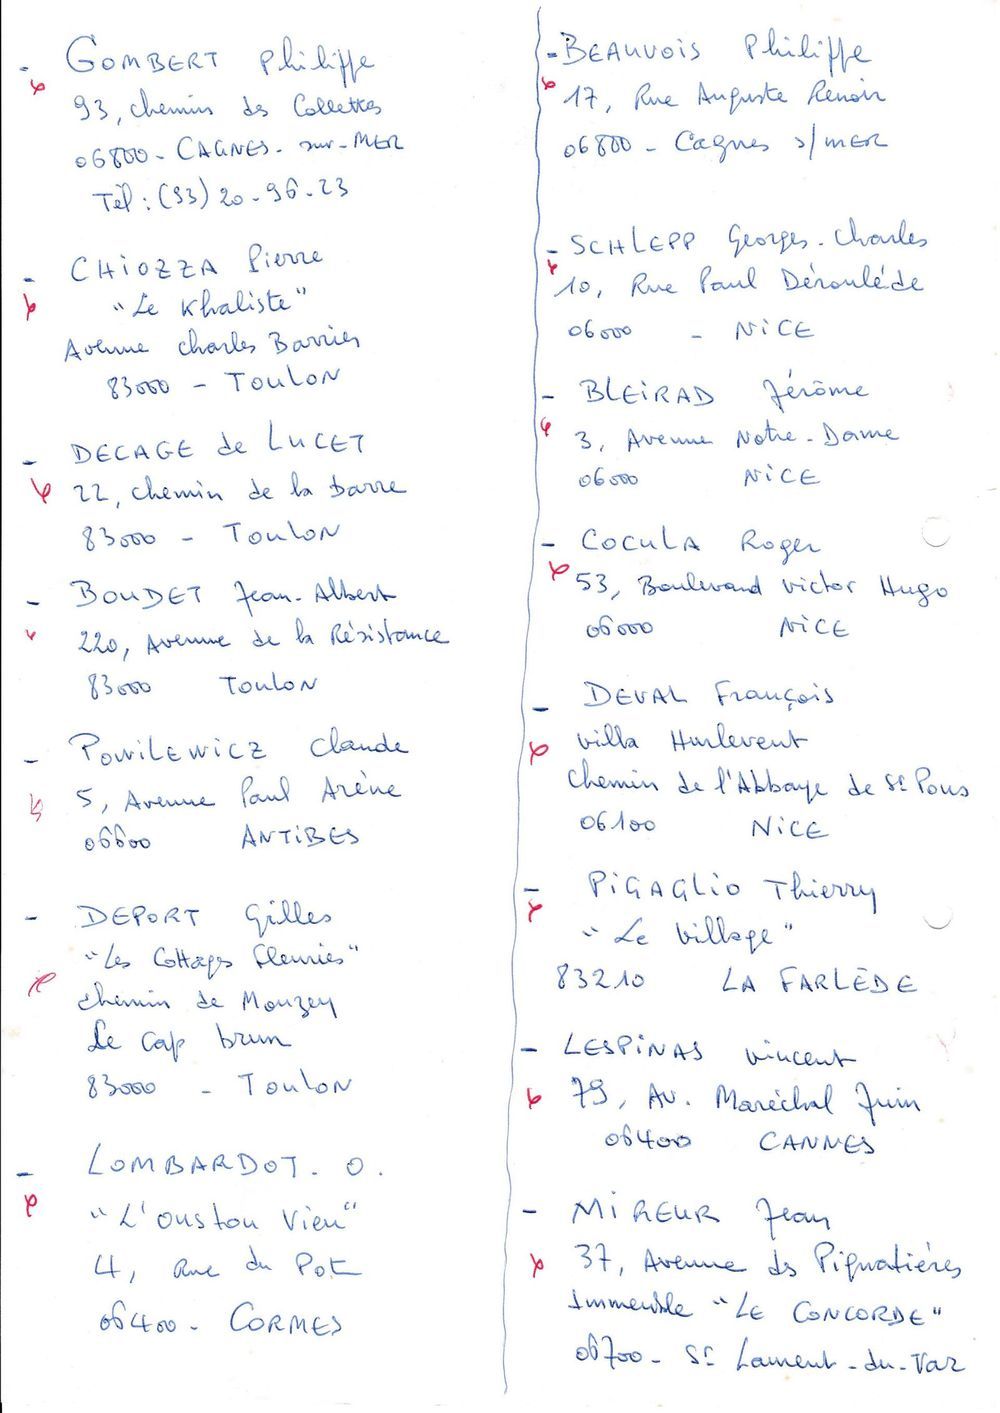 - GOMBERT Philippe
93, chemin des Collettes
06800 - CAGNES - sur - MER
Tél : (93) 20 - 96 - 23
- CHIOZZA Pierre
"Le Khaliste"
Avenue Charles Barrier
83000 - TOULON
- DECAGE de LUCET
22, chemin de la barre
83000 - TOULON
- BOUDET Jean-Albert
220, Avenue de la Résistance
83000 TOULON
- POWILEWICZ Claude
5, Avenue Paul Arène
06600 ANTIBES
- DEPORT Gilles
"Les Cottages fleuries"
chemin de Mouzey
Le Cap brun
83000 - TOULON
- LOMBARDOT. O.
"L'oustou Vieu"
4, Rue du Pot
06400 - CORMES
- BEAUVOIS Philippe
17, Rue Auguste Renoir
06800 - Cagnes s/MER
- SCHLEPP Georges-Charles
10, Rue Paul Déroulède
06000 - NICE
- BLEIRAD Jérôme
3, Avenue Notre-Dame
06000 NICE
- COCULA Roger
53, Boulevard Victor Hugo
06000 NICE
- DEVAL François
Villa Hurlevent
Chemin de l'Abbaye de St Pons
06100 NICE
- PIGAGLIO Thierry
"Le Village"
83210 LA FARLÈDE
- LESPINAS Vincent
79, Av. Maréchal Juin
06400 CANNES
- MIREUR Jean
37, Avenue des Pignatières
Immeuble "LE CONCORDE"
06700 - St Laurent-du-Var